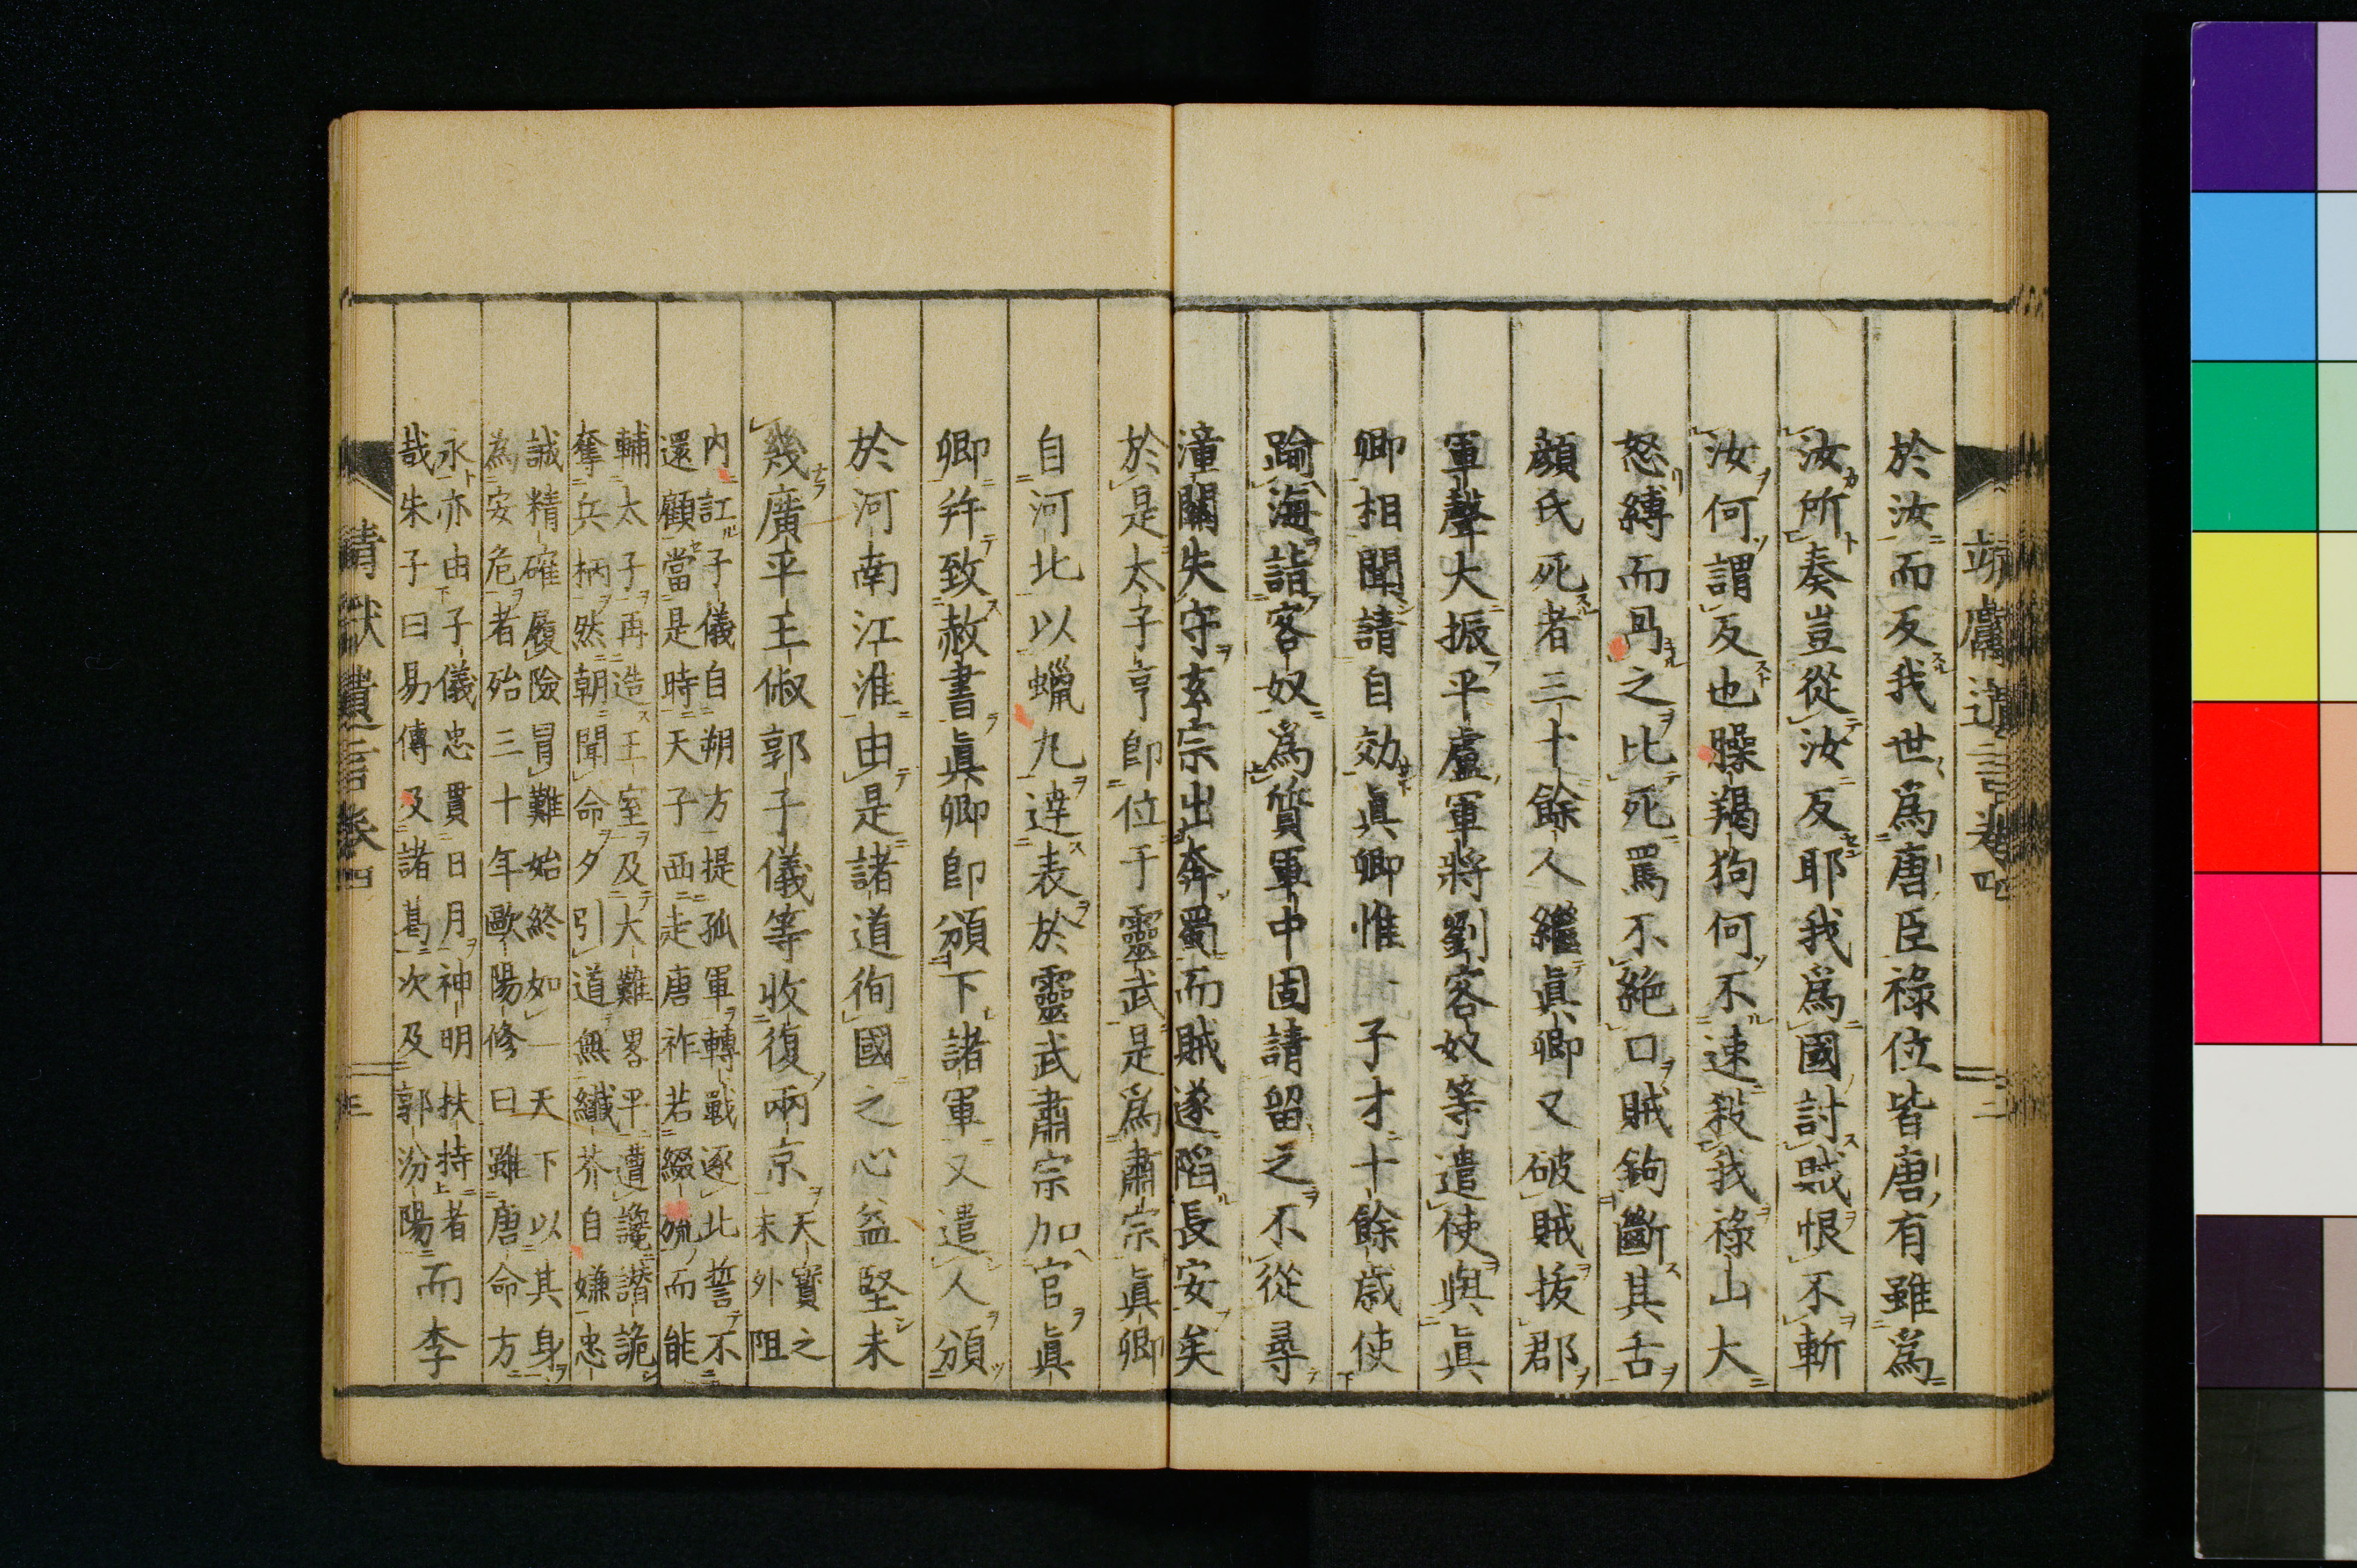 靖獻遺言卷四
二
於汝而反我世爲唐臣祿位皆唐有雖爲
汝所奏豈從汝反耶我爲國討賊恨不斬
汝何謂反也臊羯狗何不速殺我祿山大
怒縛而冎之比死罵不絕口賊鉤斷其舌
顏氏死者三十餘人繼眞卿又破賊拔郡
軍聲大振平盧軍將劉客奴等遣使與眞
卿相聞請自効眞卿惟一子才十餘歲使
踰海詣客奴爲質軍中固請留之不從尋
潼關失守玄宗出奔蜀而賊遂陷長安矣
於是太子亨卽位于靈武是爲肅宗眞卿
自河北以蠟丸達表於靈武肅宗加官眞
卿幷致赦書眞卿卽頒下諸軍又遣人頒
於河南江淮由是諸道徇國之心益堅未
幾廣平王俶郭子儀等收復兩京天寶之
末外阻
內訌子儀自朔方提孤軍轉戰逐北誓不
還顧當是時天子西走唐祚若綴旒而能
輔太子再造王室及大難畧平遭讒譖詭
奪兵柄然朝聞命夕引道無纖芥自嫌忠
誠精確履險冒難始終如一天下以其身
為安危者殆三十年歐陽修曰雖唐命方
永亦由子儀忠貫日月神明扶持者
哉朱子曰易傳及諸葛次及郭汾陽而李
靖獻遺言卷四
三